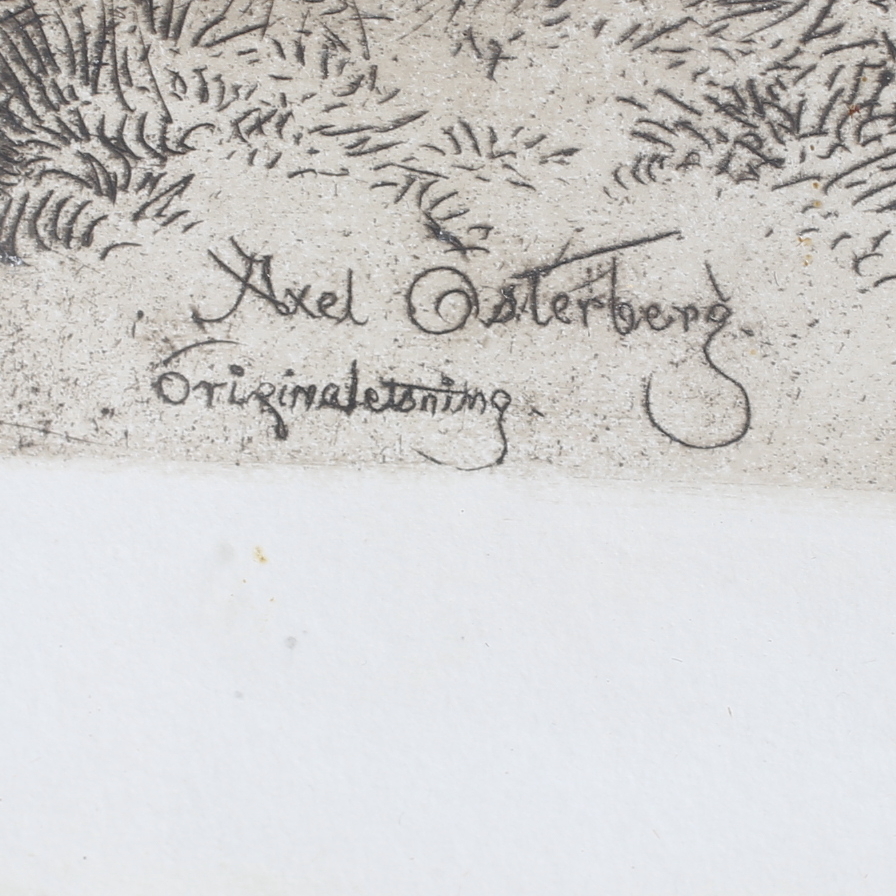 Axel Osterberg
Originaletsning.